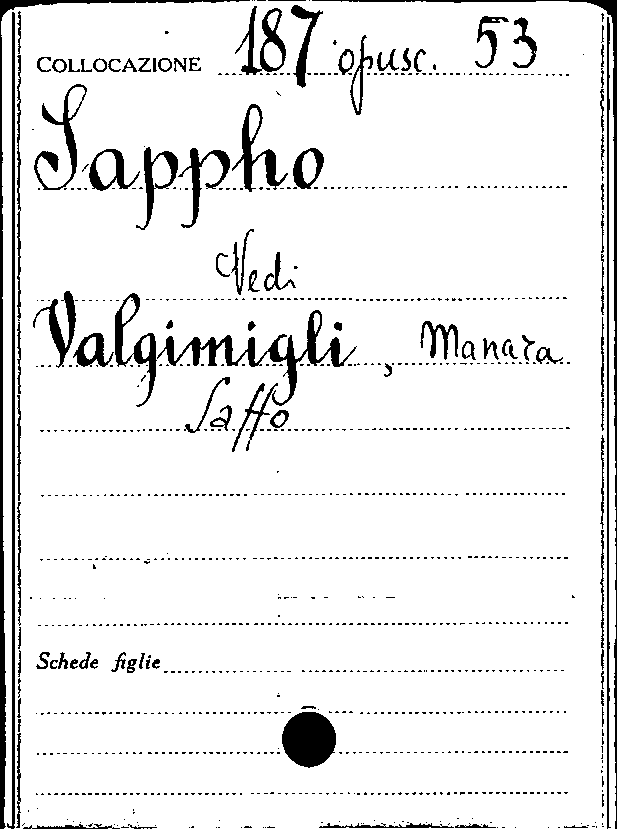 COLLOCAZIONE 187 opusc. 53
Sappho
Vedi
Valgimigli, Manara
Saffo
Schede figlie